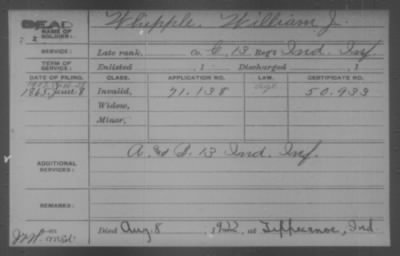 DEAD
NAME OF SOLDIER: Whipple, William J.
SERVICE: Late rank, Co. C, 13 Reg't Ind. Inf.
TERM OF SERVICE: Enlisted , 1 Discharged , 1
DATE OF FILING. CLASS. APPLICATION NO. LAW. CERTIFICATE NO.
1865, June 8 Invalid, 71.138 50.933
Widow,
Minor,
ADDITIONAL SERVICES: A. & D. 13 Ind. Inf.
REMARKS:
Died Aug. 8 , 1922, at Tippecanoe, Ind.